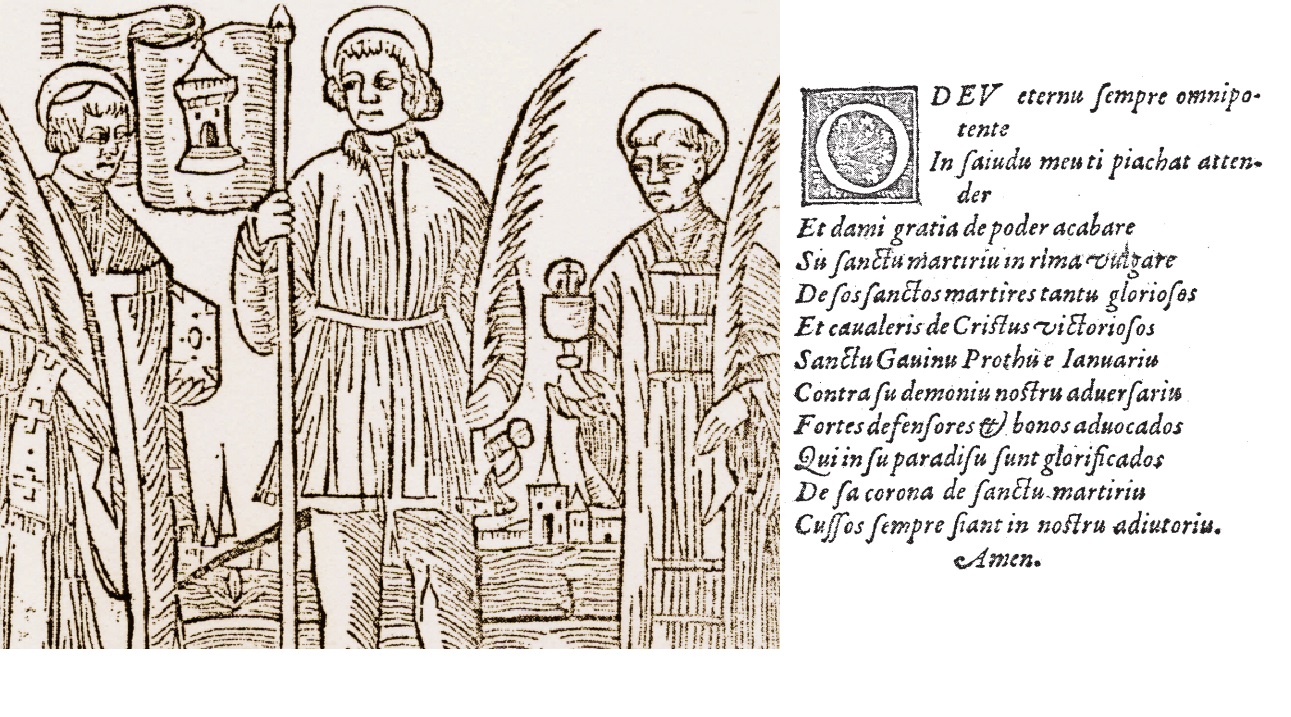 O DEV eternu ſempre omnipo-
tente
In ſaiudu meu ti piachat atten-
der
Et dami gratia de poder acabare
Su ſanctu martiriu in rima vulgare
De ſos ſanctos martires tantu glorioſos
Et caualeris de Cristus victorioſos
Sanctu Gauinu Prothu e Ianuariu
Contra ſu demoniu nostru aduerſariu
Fortes defenſores & bonos aduocados
Qui in ſu paradiſu ſunt glorificados
De ſa corona de ſanctu martiriu
Cuſſos ſempre ſiant in nostru adiutoriu.
Amen.